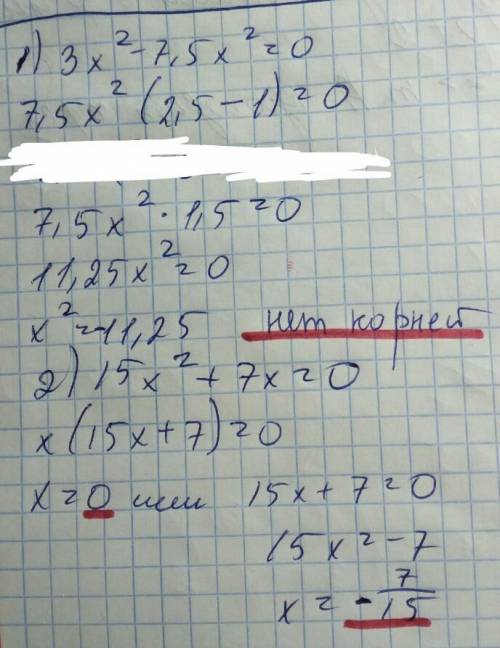 1) 3x² - 7,5x² = 0
7,5x² (2,5 - 1) = 0
7,5x² · 1,5 = 0
11,25x² = 0
x² = -11,25 нет корней
2) 15x² + 7x = 0
x(15x + 7) = 0
x = 0 или 15x + 7 = 0
15x = -7
x = -7/15